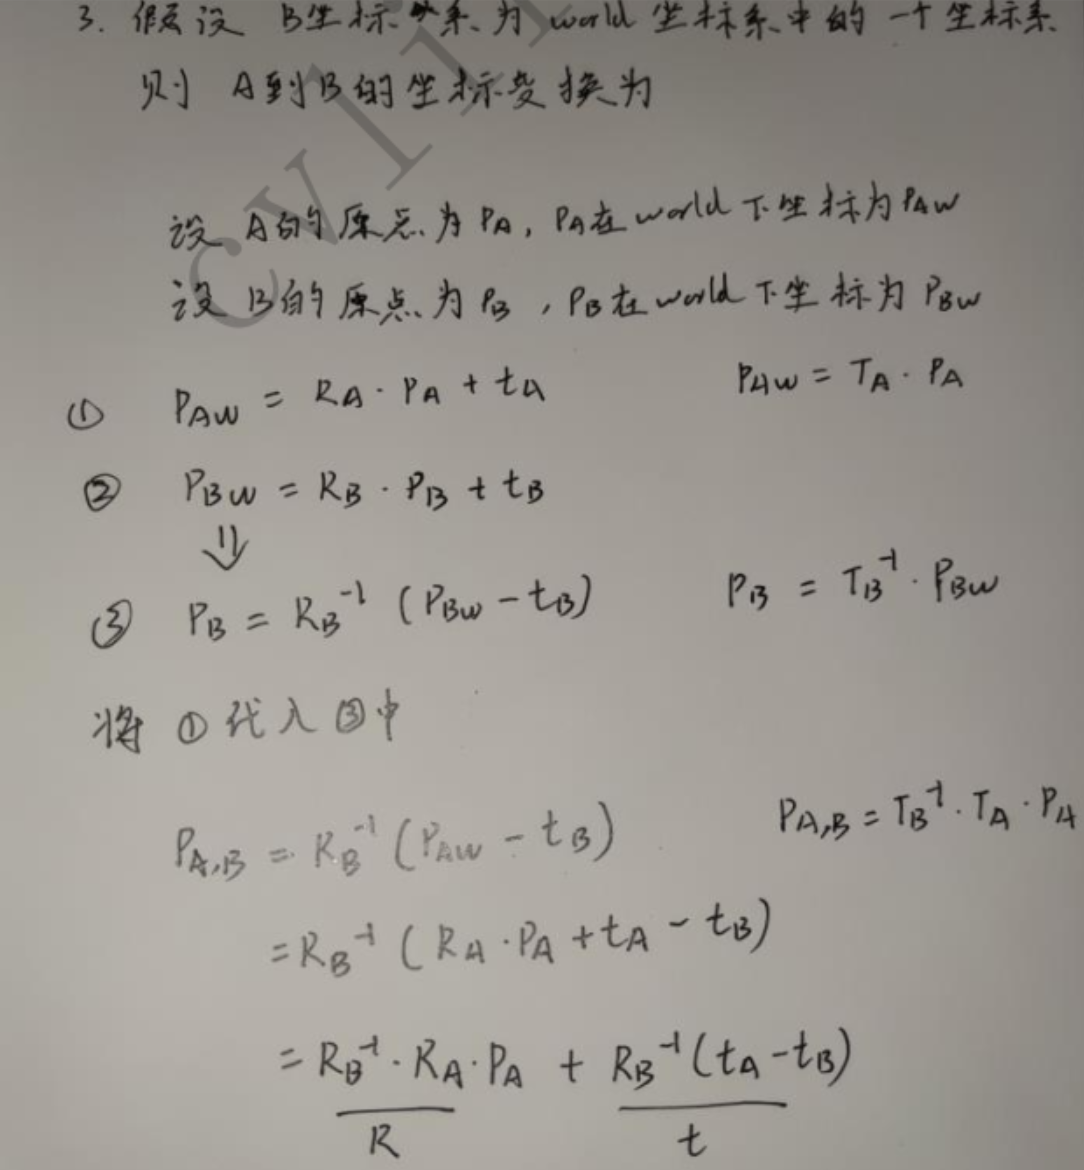 3. 假设 B坐标系为 world 坐标系中的一个坐标系
则 A到B的坐标变换为
设 A的原点为 PA, PA在world下坐标为PAW
设 B的原点为 PB, PB在world下坐标为 PBW
① PAW = RA · PA + tA PAW = TA · PA
② PBW = RB · PB + tB
⇓
③ PB = RB⁻¹ (PBW - tB) PB = TB⁻¹ · PBW
将 ① 代入 ③中
PA,B = RB⁻¹ (PAW - tB) PA,B = TB⁻¹ · TA · PA
= RB⁻¹ (RA · PA + tA - tB)
= RB⁻¹ · RA · PA + RB⁻¹ (tA - tB)
R t